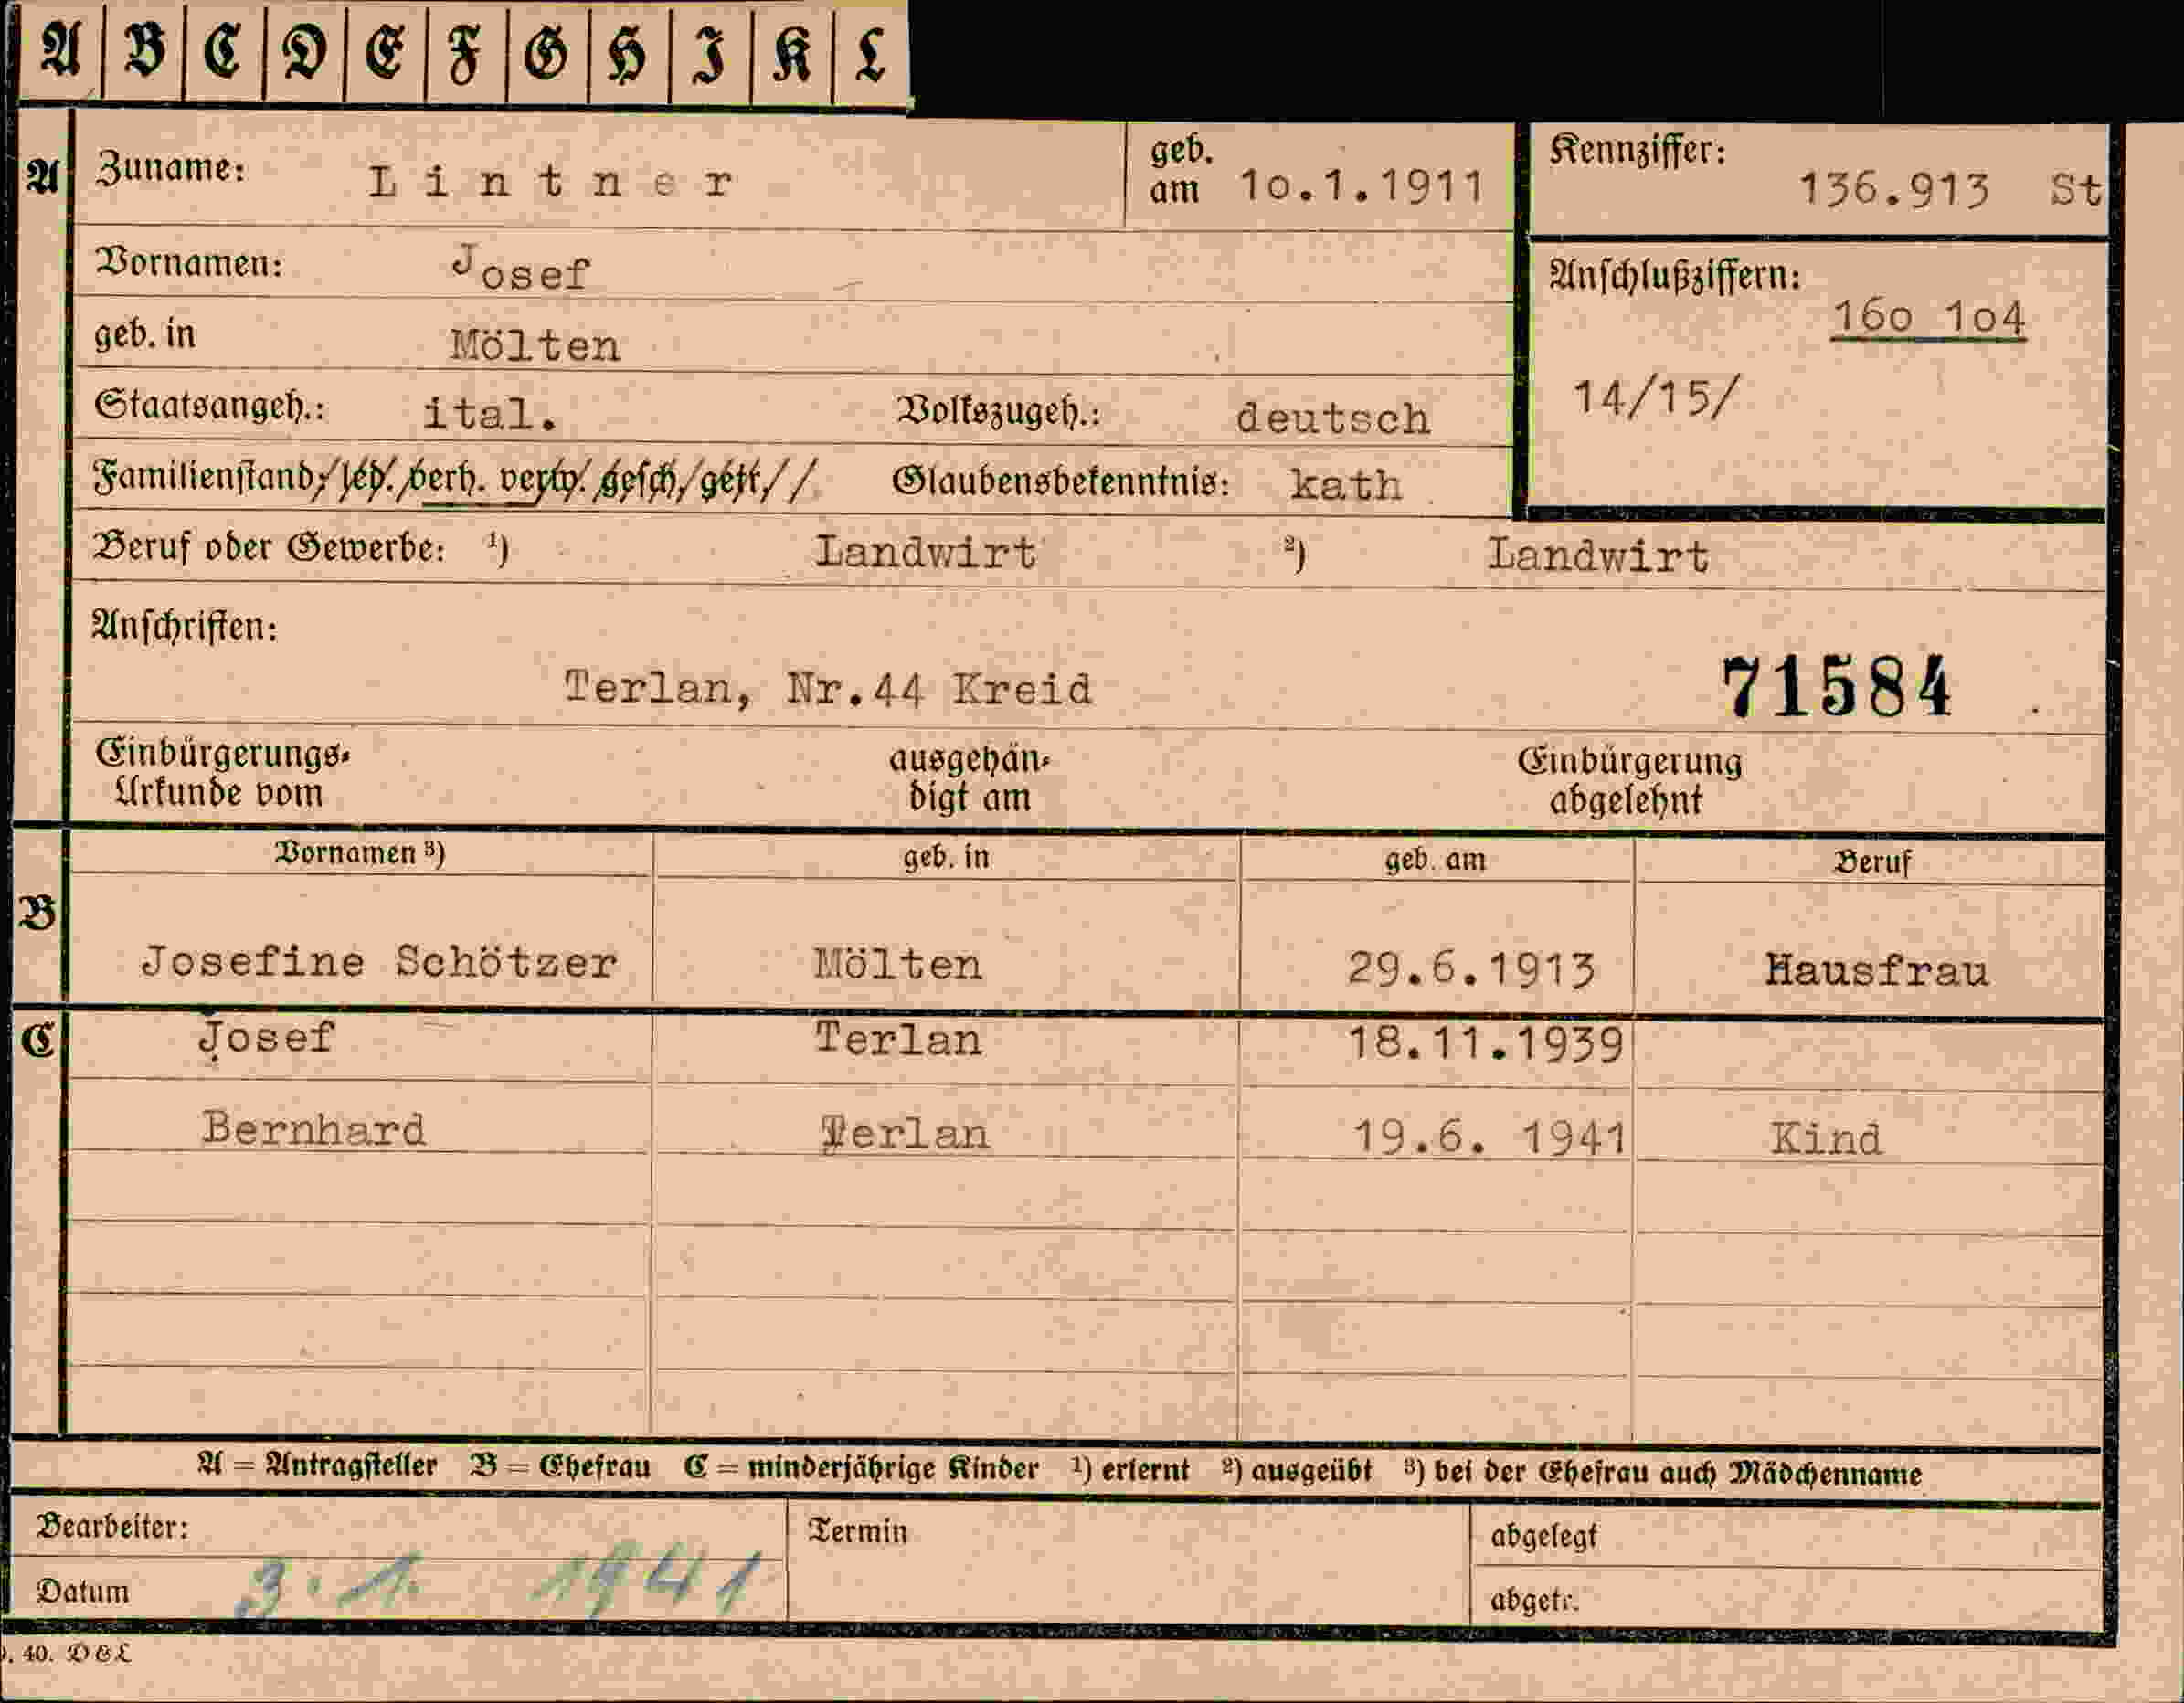 A B C D E F G H I K L
A Zuname: Lintner geb. am 10.1.1911 Kennziffer: 136.913 St
Vornamen: Josef Anschlußziffern: 160 104
geb. in Mölten
Staatsangeh.: ital. Volkszugeh.: deutsch 14/15/
Familienstand: led. verh. verw. gesch. getr. Glaubensbekenntnis: kath
Beruf oder Gewerbe: ¹) Landwirt ²) Landwirt
Anschriften:
Terlan, Nr.44 Kreid 71584
Einbürgerungs-Urkunde vom ausgehändigt am Einbürgerung abgelehnt
Vornamen ³) geb. in geb. am Beruf
B Josefine Schötzer Mölten 29.6.1913 Hausfrau
C Josef Terlan 18.11.1939
Bernhard Terlan 19.6. 1941 Kind
A = Antragsteller B = Ehefrau C = minderjährige Kinder ¹) erlernt ²) ausgeübt ³) bei der Ehefrau auch Mädchenname
Bearbeiter: Termin abgelegt
Datum 3. 1. 1941 abgetr.
40. D&L